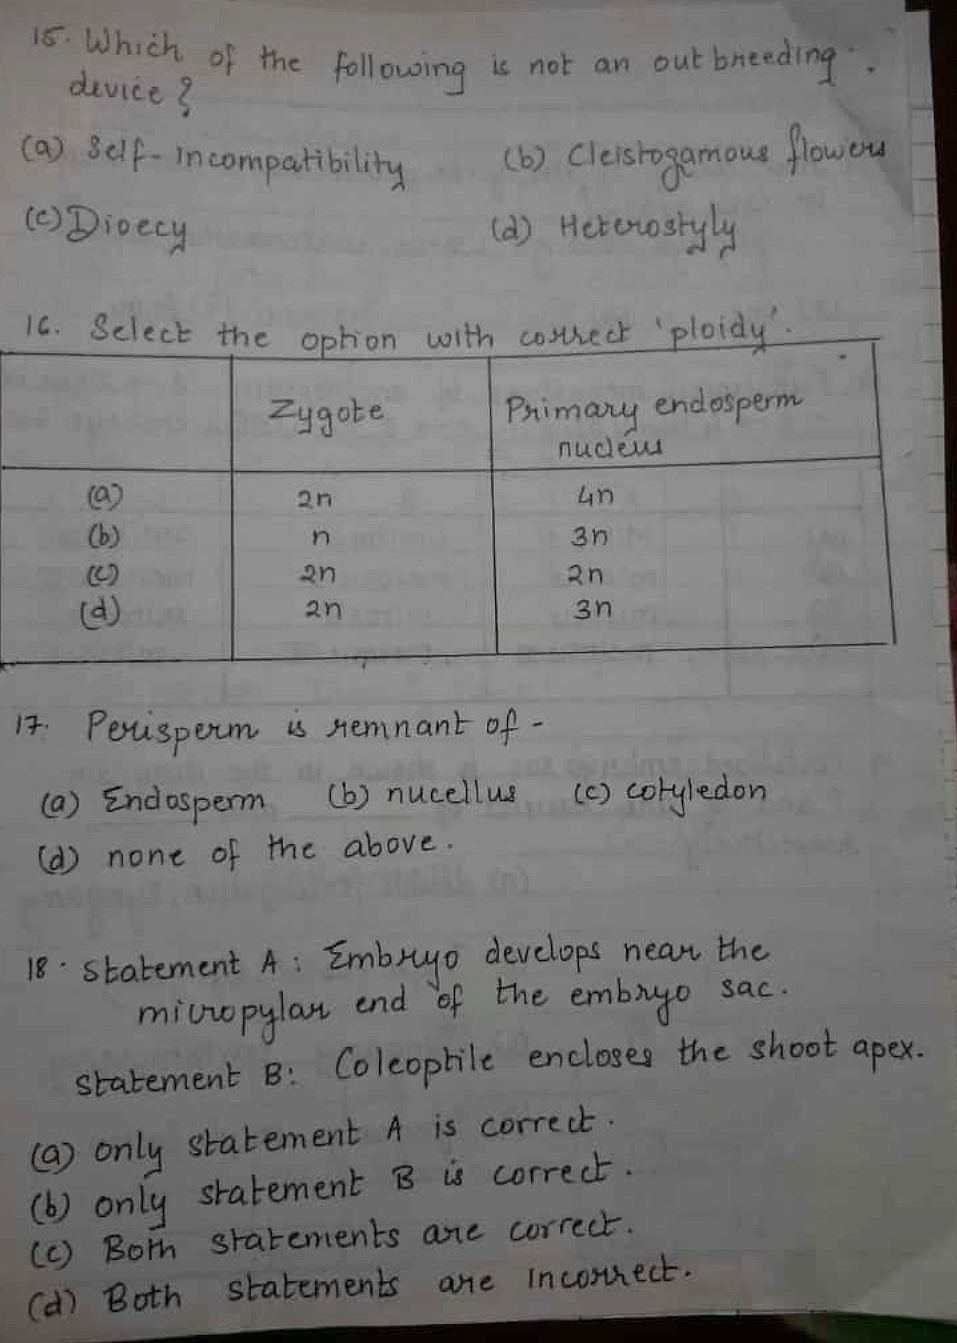 15. Which of the following is not an outbreeding
device?
(a) Self-Incompatibility (b) Cleistogamous flowers
(c) Dioecy (d) Heterostyly
16. Select the option with correct 'ploidy'.
Zygote Primary endosperm
nucleus
(a) 2n 4n
(b) n 3n
(c) 2n 2n
(d) 2n 3n
17. Perisperm is remnant of -
(a) Endosperm (b) nucellus (c) cotyledon
(d) none of the above.
18. Statement A: Embryo develops near the
micropylar end of the embryo sac.
Statement B: Coleoptile encloses the shoot apex.
(a) only statement A is correct.
(b) only statement B is correct.
(c) Both statements are correct.
(d) Both statements are incorrect.